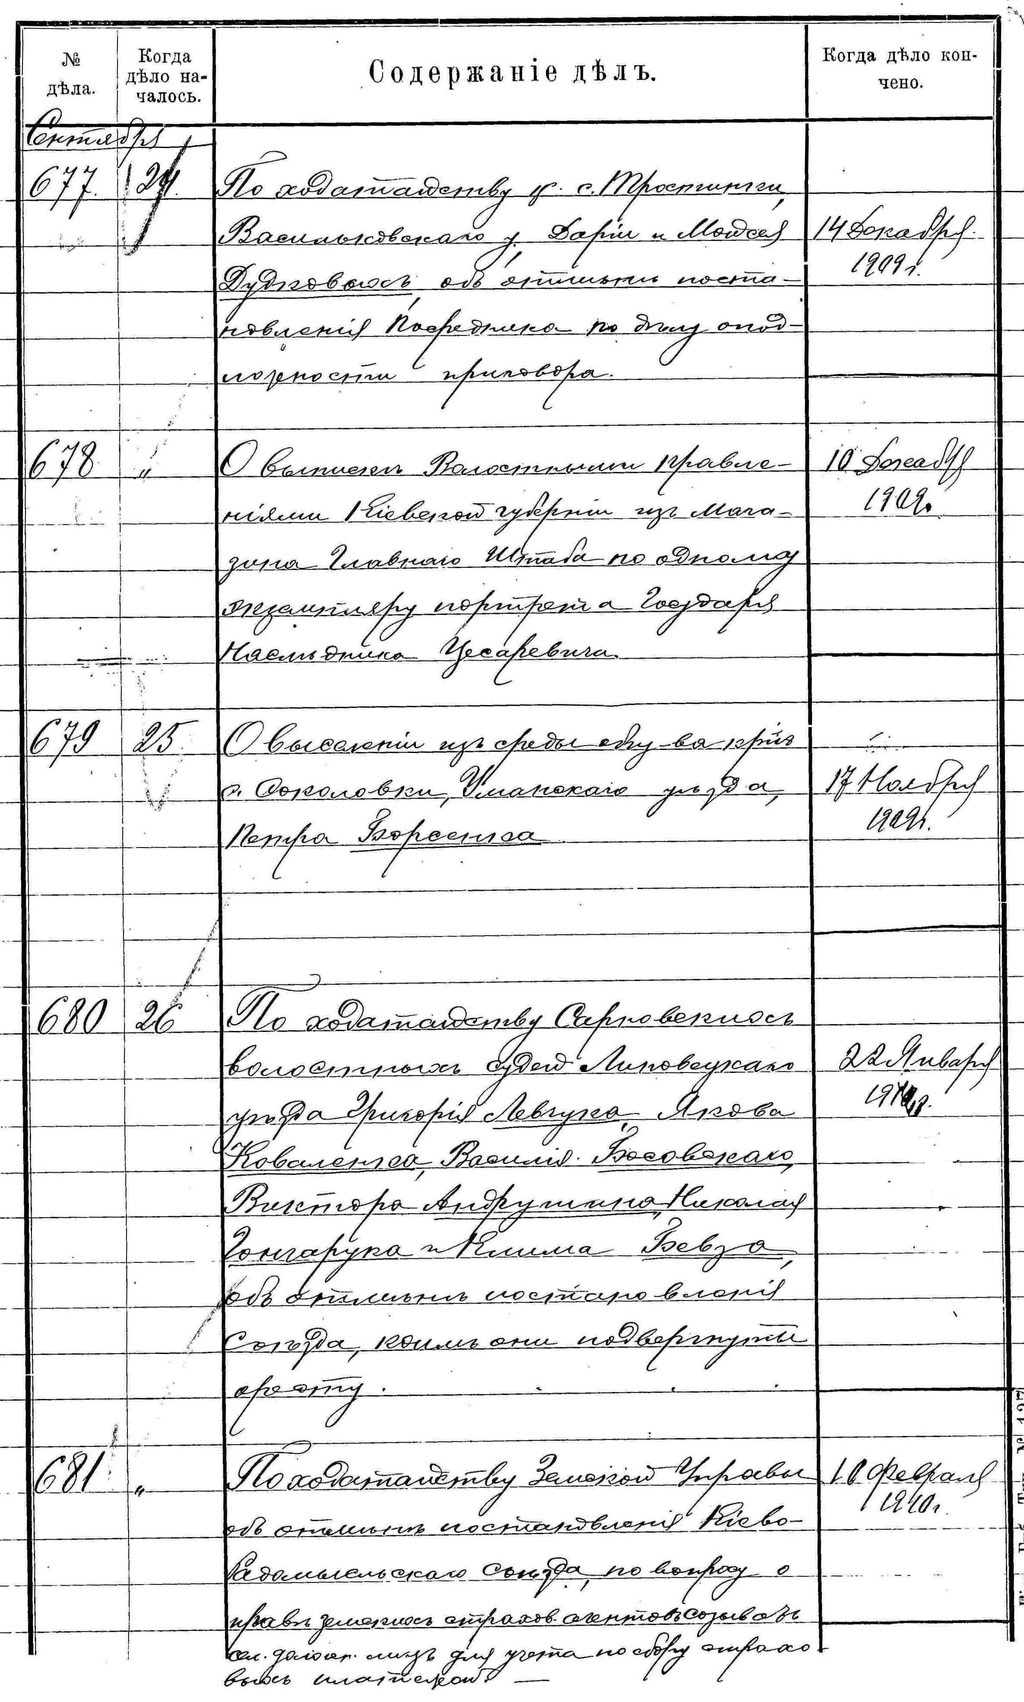 № дѣла.
Когда дѣло на-
чалось.
Содержаніе дѣлъ.
Когда дѣло кон-
чено.
Сентября
677. 24.
По ходатайству кр. с. Тростинки,
Васильковскаго у. Даріи и Моисея
Дудковыхъ, объ отмѣнѣ поста-
новленія Посредника по дѣлу о под-
ложности приговора.
14 Декабря
1909 г.
678 "
О выпискѣ Волостными правле-
ніями Кіевской губерніи изъ Мага-
зина Главнаго Штаба по одному
экземпляру портрета Государя
Наслѣдника Цесаревича.
10 Декабря
1909.
679 25
О выселеніи изъ среды общ-ва кр-нъ
с. Соколовки, Уманскаго уѣзда,
Петра
17 Ноября
1909 г.
680 26
По ходатайству
волостныхъ судей Липовецкаго
уѣзда Григорія Левчука, Якова
Коваленка, Василія
Виктора Андрушина, Николая
Гончарука и Клима Бевза,
объ отмѣнѣ постановленія
Съѣзда, коимъ они подвергнуты
аресту.
22 Января
1910 г.
681 "
По ходатайству Земской Управы
объ отмѣнѣ постановленія Кіево-
Радомысльскаго съѣзда, по вопросу о
правѣ земскихъ страхов. агентовъ созывать
сел. должн. лицъ для учета по сбору страхо-
выхъ платежей. —
Февраля
1910 г.